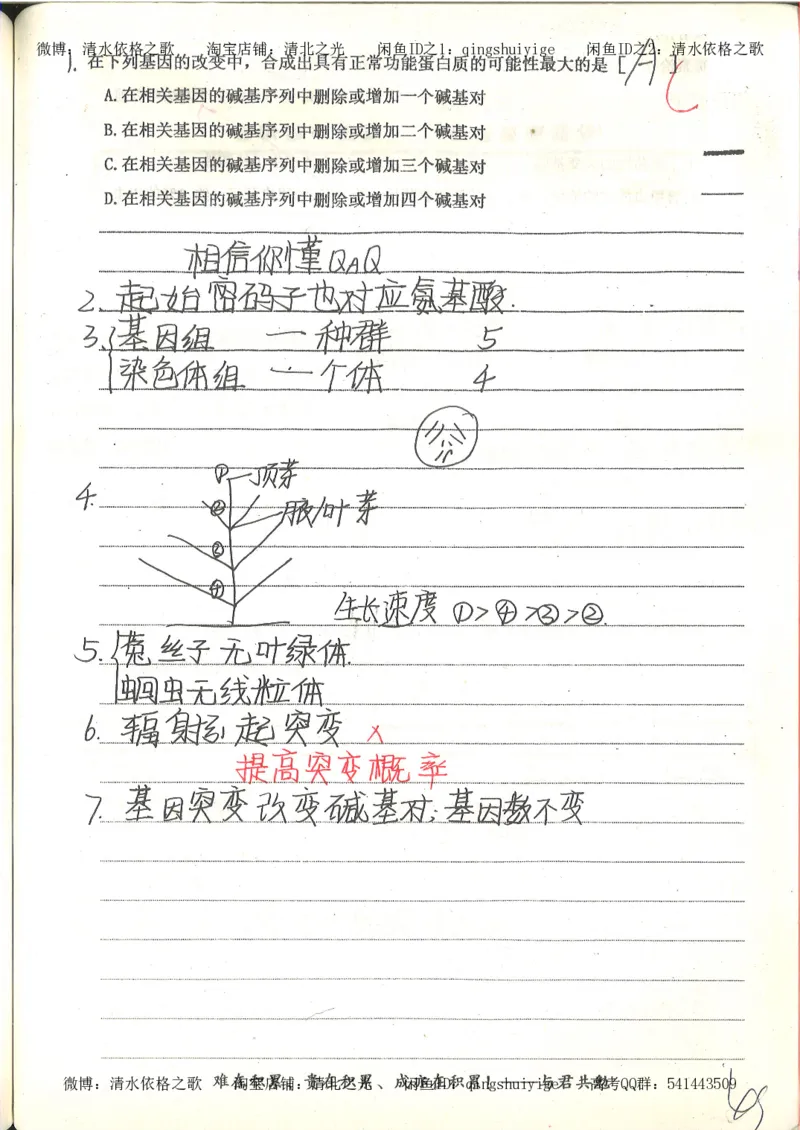 微博：清水依格之歌 淘宝店铺：清北之光 闲鱼ID之1：qingshuiyige 闲鱼ID之2：清水依格之歌
1. 在下列基因的改变中，合成出具有正常功能蛋白质的可能性最大的是［A］C
A.在相关基因的碱基序列中删除或增加一个碱基对
B.在相关基因的碱基序列中删除或增加二个碱基对
C.在相关基因的碱基序列中删除或增加三个碱基对
D.在相关基因的碱基序列中删除或增加四个碱基对
相信你懂QAQ
2. 起始密码子也对应氨基酸.
3. 基因组 — 种群 5
染色体组 — 个体 4
① 顶芽
4. ③ 腋/叶芽
②
④
生长速度 ①>④>③>②.
5. 菟丝子无叶绿体.
蛔虫无线粒体
6. 辐射引起突变 ×
提高突变概率
7. 基因突变改变碱基对；基因数不变
微博：清水依格之歌 淘宝店铺：清北之光 闲鱼ID：qingshuiyige 高考QQ群：541443509
难在积累、贵在积累、成亦在积累！——与君共勉